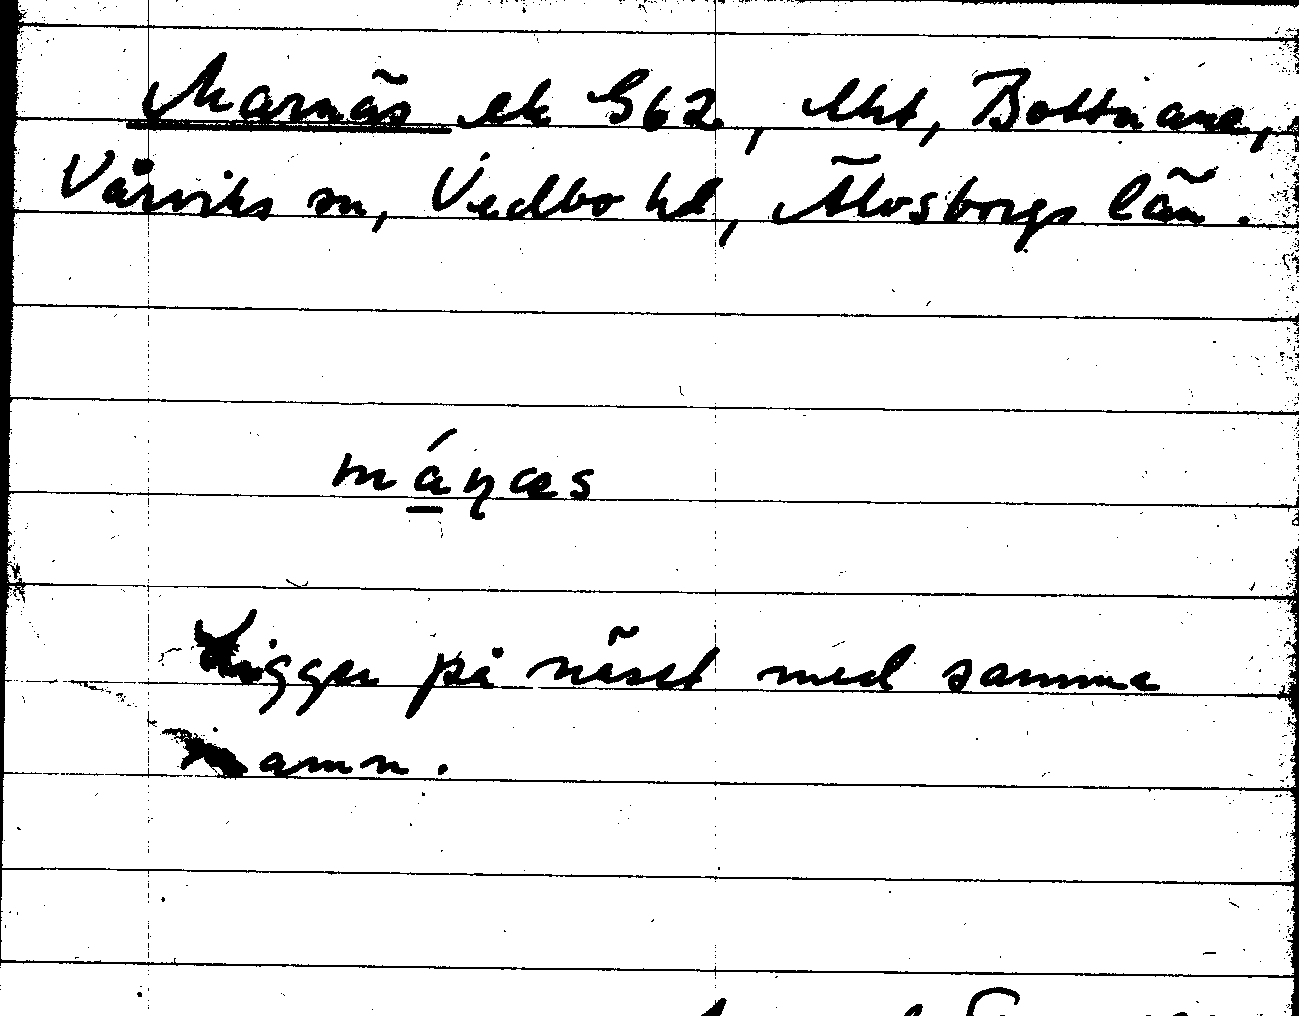 Marnäs ek G62, lht, Bottnane,
Vårviks sn, Vedbo hd, Älvsborgs län.
mánæs
Ligger på näset med samma
namn.